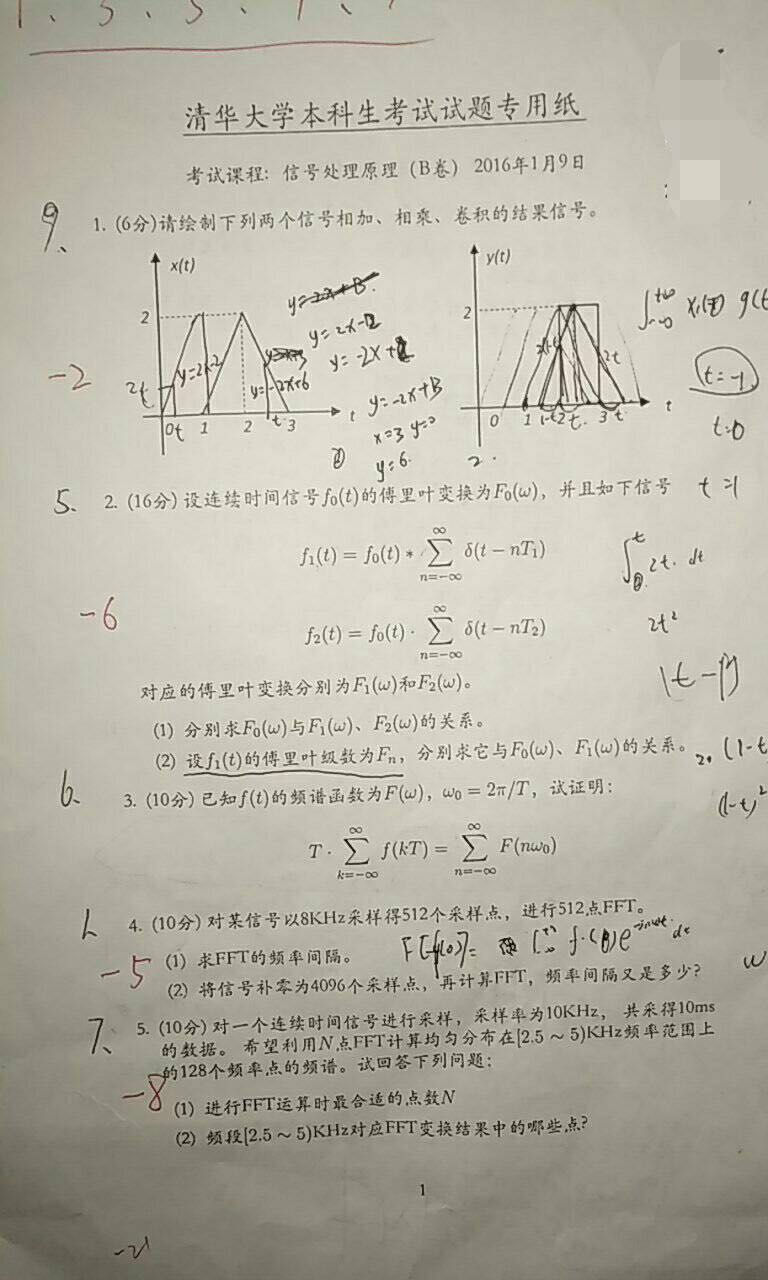 清华大学本科生考试试题专用纸
考试课程：信号处理原理（B卷） 2016年1月9日
9、
1. (6分)请绘制下列两个信号相加、相乘、卷积的结果信号。
x(t)
2
2t
0 t 1 2 t 3 t
y=2x+B
y=2x-2
y=2x-2
y=-2x+6
y=-2x+B
x=3 y=0
y=6
y(t)
2
2t
0 1 1-t 2 t 3 t
t=-1
t=0
-2
2.
5.
2. (16分) 设连续时间信号f₀(t)的傅里叶变换为F₀(ω)，并且如下信号
t=1
f₁(t) = f₀(t) * ∑_{n=-∞}^{∞} δ(t − nT₁)
∫ 2t. dt
-6
f₂(t) = f₀(t) · ∑_{n=-∞}^{∞} δ(t − nT₂)
2t²
对应的傅里叶变换分别为F₁(ω)和F₂(ω)。
(1) 分别求F₀(ω)与F₁(ω)、F₂(ω)的关系。
(2) 设f₁(t)的傅里叶级数为Fₙ，分别求它与F₀(ω)、F₁(ω)的关系。
2. (1-t
6.
3. (10分) 已知f(t)的频谱函数为F(ω)，ω₀ = 2π/T，试证明：
(1-t)²
T · ∑_{k=-∞}^{∞} f(kT) = ∑_{n=-∞}^{∞} F(nω₀)
4. (10分) 对某信号以8KHz采样得512个采样点，进行512点FFT。
-5
(1) 求FFT的频率间隔。
(2) 将信号补零为4096个采样点，再计算FFT，频率间隔又是多少？
w
7、
5. (10分) 对一个连续时间信号进行采样，采样率为10KHz， 共采得10ms
的数据。 希望利用N点FFT计算均匀分布在[2.5 ~ 5)KHz频率范围上
的128个频率点的频谱。试回答下列问题：
-8
(1) 进行FFT运算时最合适的点数N
(2) 频段[2.5 ~ 5)KHz对应FFT变换结果中的哪些点？
1